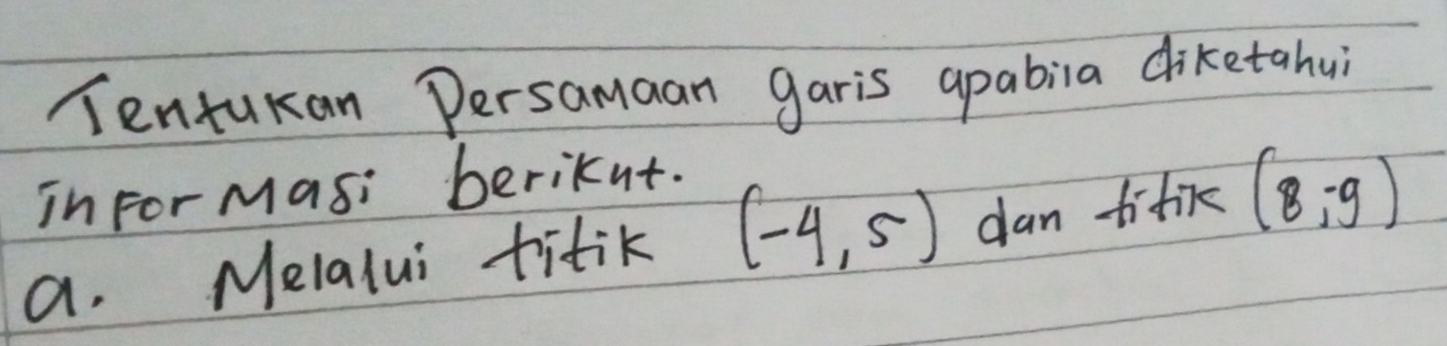 Tentukan Persamaan garis apabila diketahui
informasi berikut.
a. Melalui titik (-4,5) dan titik (8,-9)